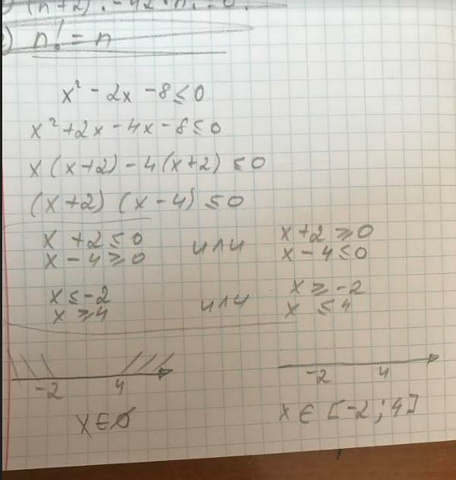 (n+2)! - 42 · n! = 0.
) n! = n
x² - 2x - 8 ≤ 0
x² + 2x - 4x - 8 ≤ 0
x (x+2) - 4(x+2) ≤ 0
(x+2) (x-4) ≤ 0
x + 2 ≤ 0 или x + 2 ≥ 0
x - 4 ≥ 0 x - 4 ≤ 0
x ≤ -2 или x ≥ -2
x ≥ 4 x ≤ 4
-2 4 -2 4
x ∈ ∅ x ∈ [-2 ; 4]